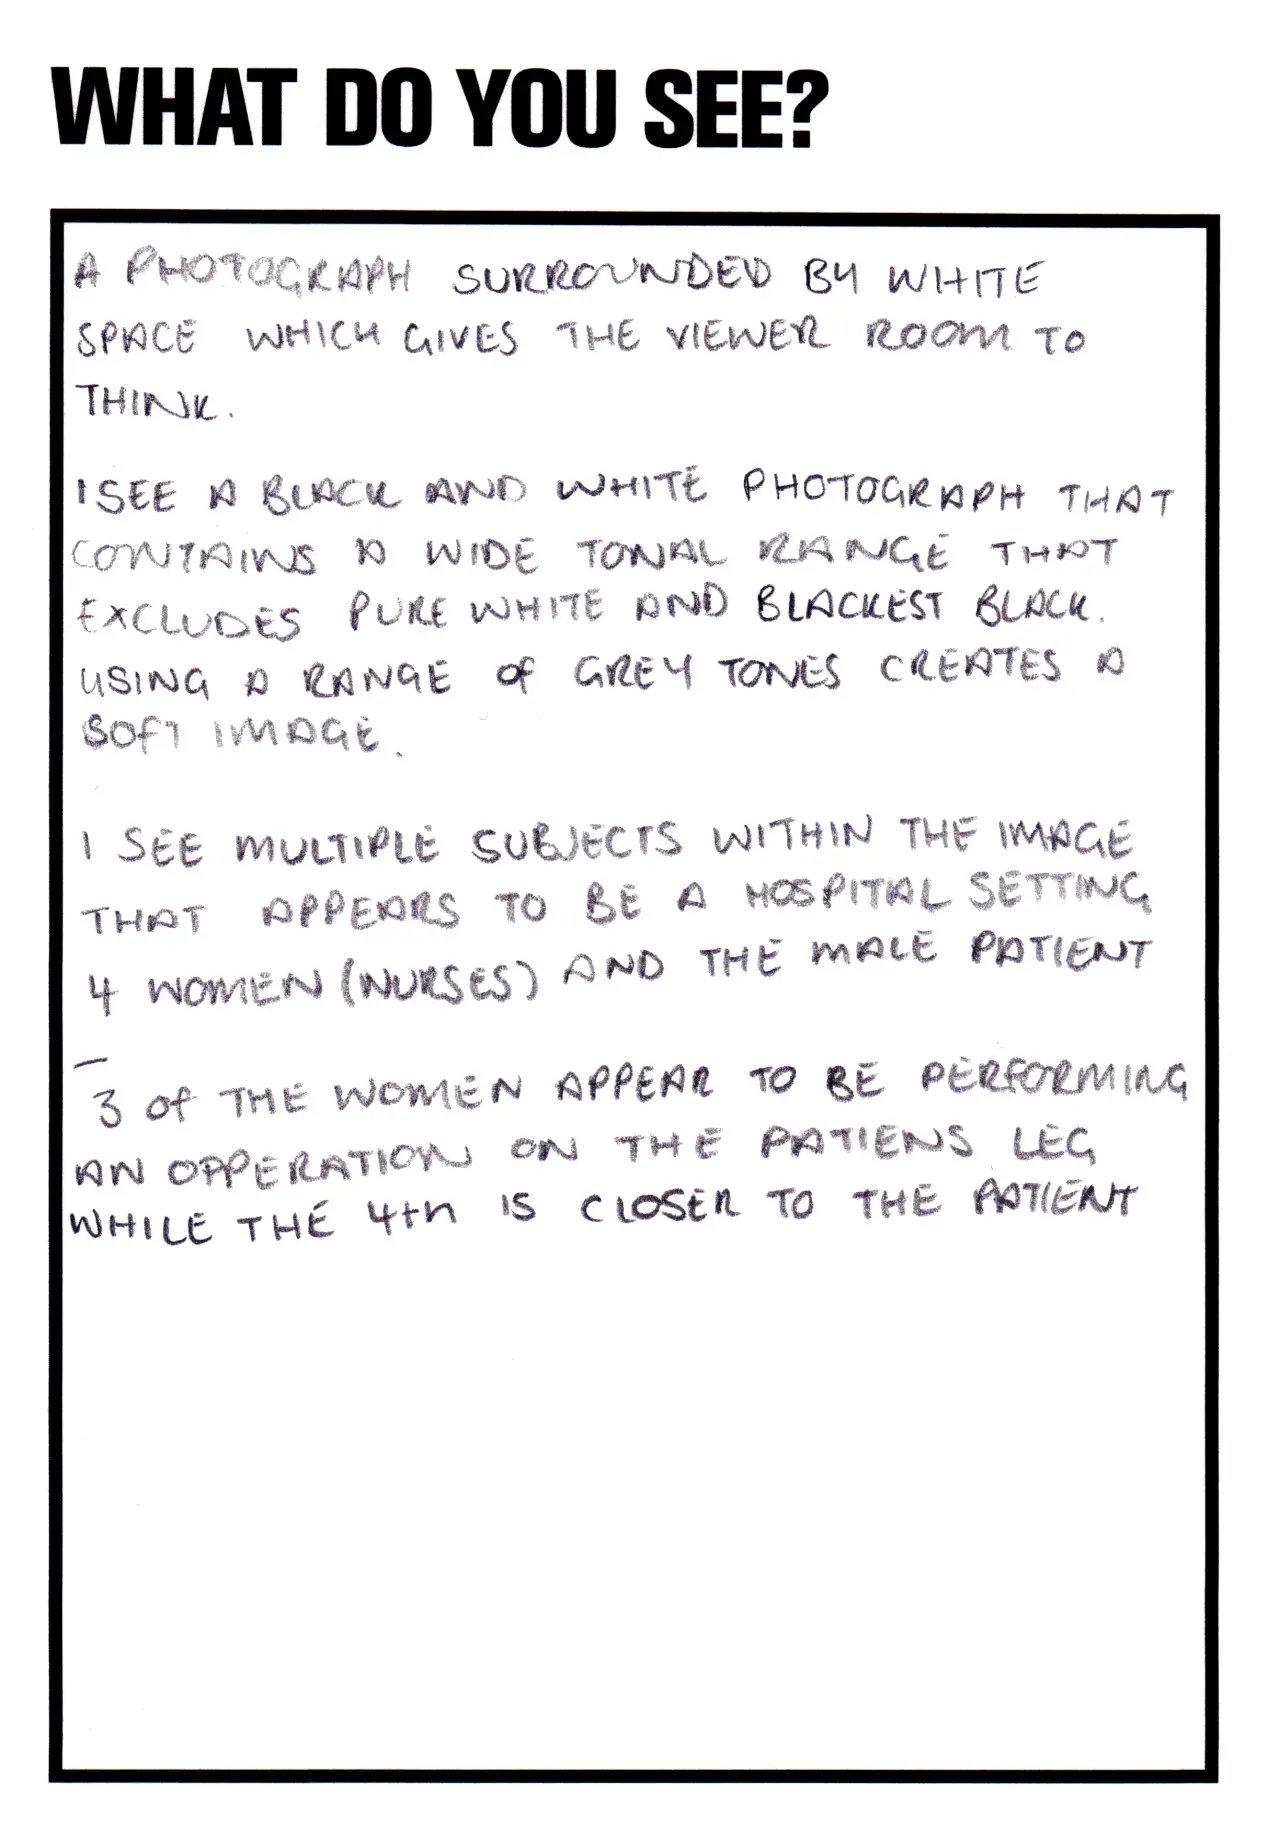 WHAT DO YOU SEE?
A PHOTOGRAPH SURROUNDED BY WHITE
SPACE WHICH GIVES THE VIEWER ROOM TO
THINK.
I SEE A BLACK AND WHITE PHOTOGRAPH THAT
CONTAINS A WIDE TONAL RANGE THAT
EXCLUDES PURE WHITE AND BLACKEST BLACK.
USING A RANGE OF GREY TONES CREATES A
SOFT IMAGE.
I SEE MULTIPLE SUBJECTS WITHIN THE IMAGE
THAT APPEARS TO BE A HOSPITAL SETTING
4 WOMEN (NURSES) AND THE MALE PATIENT
–
3 of THE WOMEN APPEAR TO BE PERFORMING
AN OPPERATION ON THE PATIENS LEG
WHILE THE 4th IS CLOSER TO THE PATIENT